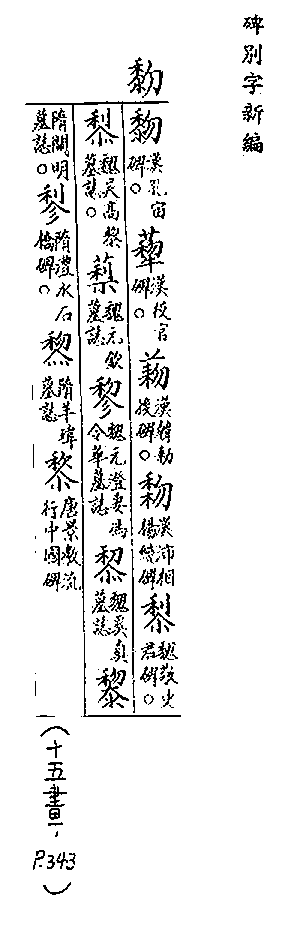 碑別字新編
黎
黎漢孔宙碑。漢校官碑。漢韓勑後碑。漢沛相楊統碑。黎魏敬史君碑。
黎魏吳高黎墓誌。魏元欽墓誌 黎魏元澄妻馮令華墓誌 黎魏奚真墓誌 黎
隋關明墓誌。隋澧水石橋碑。黎隋羊瑋墓誌 黎唐景教流行中國碑
(十五畫,
P.343)